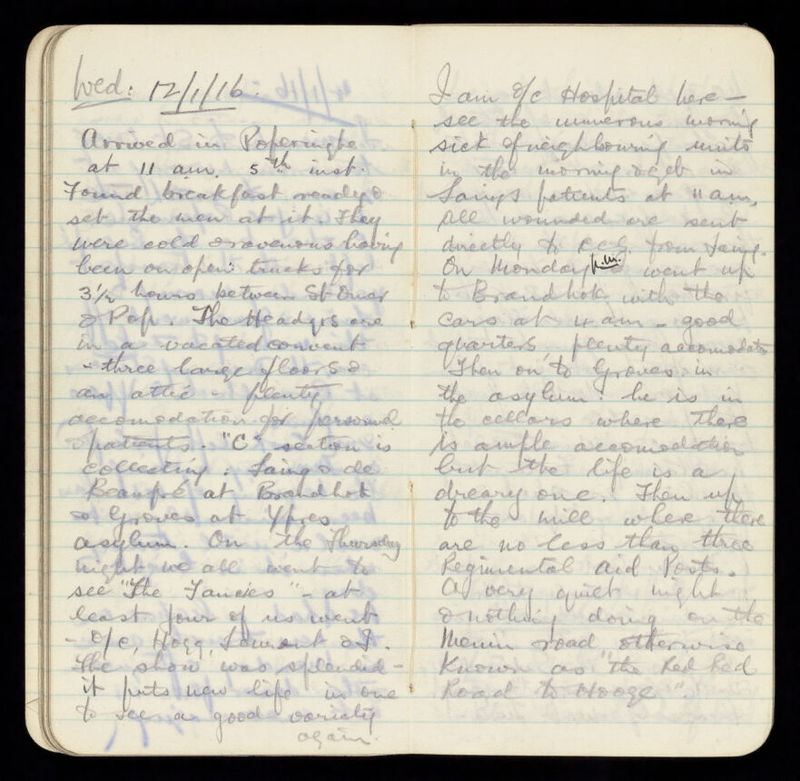 Wed: 12/1/16.
Arrived in Poperinghe
at 11 am. 5th inst.
Found breakfast ready &
set the men at it. They
were cold & ravenous having
been on open trucks for
3½ hours between St Omer
& Pop. The Headqrs are
in a vacated convent
- three large floors &
an attic - plenty
accomodation for personnel
& patients. "C" section is
collecting. Laing & de
Beaupré at Brandhok
& Groves at Ypres
asylum. On the Thursday
night we all went to
see "The Fancies" - at
least four of us went
- O/c, Hogg, Lamont & I.
The show was splendid -
it puts new life in one
to see a good variety
again.
I am O/c Hospital here -
see the numerous morning
sick of neighbouring units
in the morning & get in
Laings patients at 11 am,
All wounded are sent
directly to C.C.S. from Laing.
On Monday p.m. went up
to Brandhok with the
cars at 4 am - good
quarters plenty accomodatn
Then on to Groves in
the asylum: he is in
the cellars where there
is ample accomodation
but the life is a
dreary one. Then up
to the mill where there
are no less than three
Regimental Aid Posts.
A very quiet night
& nothing doing on the
Menin road otherwise
known as "the Red Red
Road to Hooge"